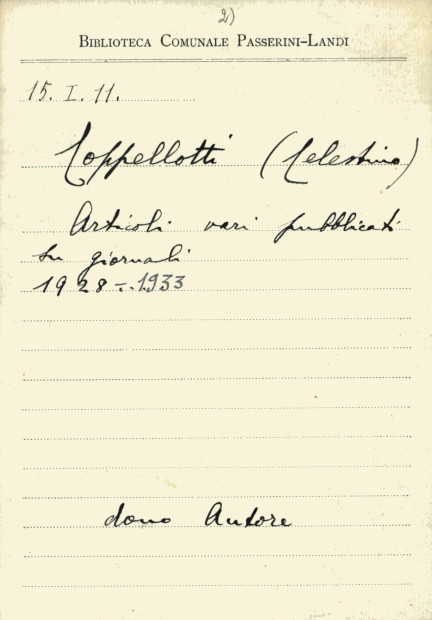 2)
BIBLIOTECA COMUNALE PASSERINI-LANDI
15. I. 11.
Coppellotti (Celestino)
Articoli vari pubblicati
su giornali
1928÷1933
dono Autore